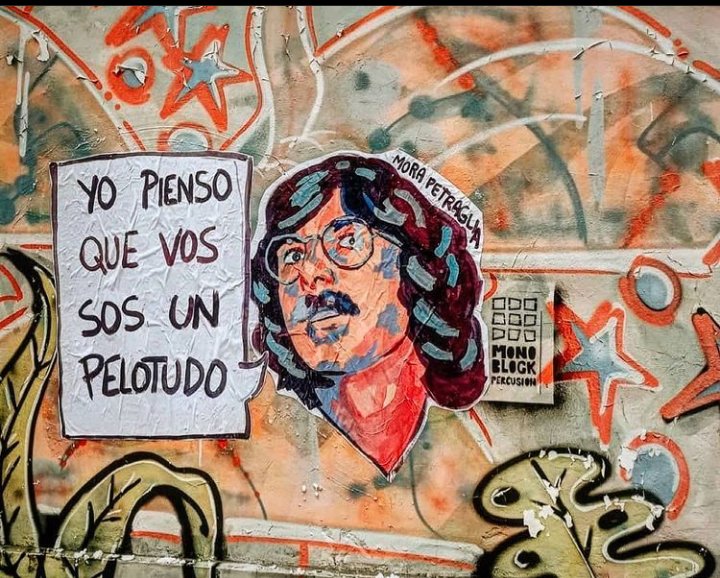 YO PIENSO
QUE VOS
SOS UN
PELOTUDO
MORA PETRAGLIA
MONO
BLOCK
PERCUSION